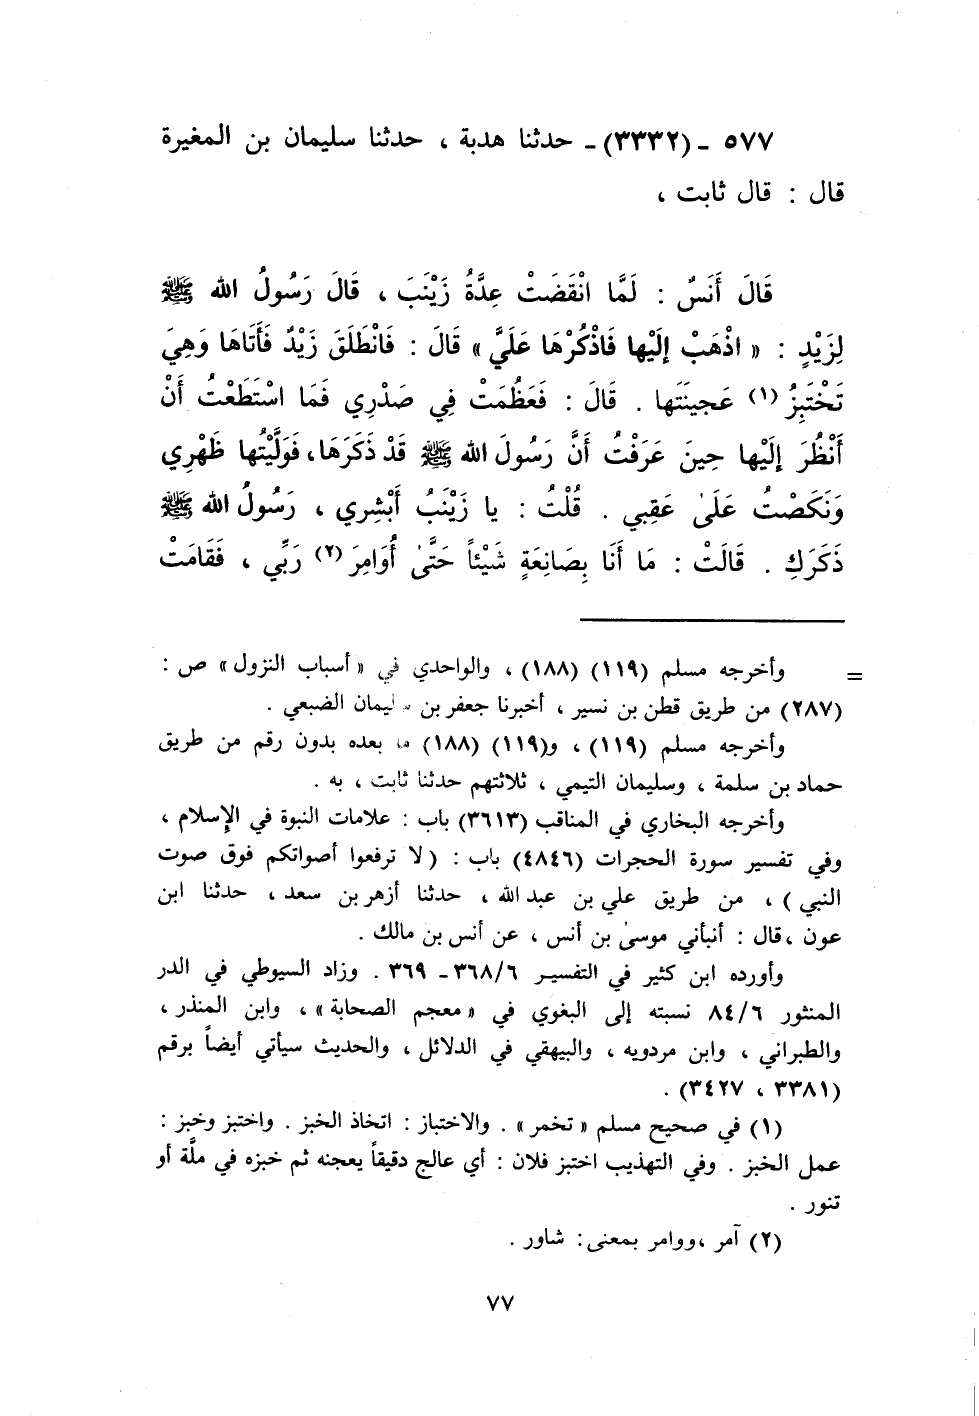 ٥٧٧ ـ (٣٣٣٢) ـ حدثنا هدبة ، حدثنا سليمان بن المغيرة
قال : قال ثابت ،
قَالَ أَنَسٌ : لَمَّا انْقَضَتْ عِدَّةُ زَيْنَبَ ، قَالَ رَسُولُ الله ﷺ
لِزَيْدٍ : « اذْهَبْ إِلَيْها فَاذْكُرْهَا عَلَيَّ » قَالَ : فَانْطَلَقَ زَيْدٌ فَأَتَاهَا وَهِيَ
تَخْتَبِزُ (١) عَجينَتَها . قَالَ : فَعَظُمَتْ فِي صَدْرِي فَمَا اسْتَطَعْتُ أَنْ
أَنْظُرَ إِلَيْها حِينَ عَرَفْتُ أَنَّ رَسُولَ الله ﷺ قَدْ ذَكَرَهَا، فَوَلَّيْتُها ظَهْرِي
وَنَكَصْتُ عَلَىٰ عَقِبي . قُلْتُ : يا زَيْنَبُ أَبْشِري ، رَسُولُ الله ﷺ
ذَكَرَكِ . قَالَتْ : مَا أَنَا بِصَانِعَةٍ شَيْئاً حَتَّىٰ أُوَامِرَ (٢) رَبِّي ، فَقَامَتْ
= وأخرجه مسلم (١١٩) (١٨٨) ، والواحدي في « أسباب النزول » ص :
(٢٨٧) من طريق قطن بن نسير ، أخبرنا جعفر بن سليمان الضبعي .
وأخرجه مسلم (١١٩) ، و(١١٩) (١٨٨) ما بعده بدون رقم من طريق
حماد بن سلمة ، وسليمان التيمي ، ثلاثتهم حدثنا ثابت ، به .
وأخرجه البخاري في المناقب (٣٦١٣) باب : علامات النبوة في الإسلام ،
وفي تفسير سورة الحجرات (٤٨٤٦) باب : ( لا ترفعوا أصواتكم فوق صوت
النبي ) ، من طريق علي بن عبد الله ، حدثنا أزهر بن سعد ، حدثنا ابن
عون ،قال : أنبأني موسىٰ بن أنس ، عن أنس بن مالك .
وأورده ابن كثير في التفسير ٣٦٨/٦ ـ ٣٦٩ . وزاد السيوطي في الدر
المنثور ٨٤/٦ نسبته إلى البغوي في «معجم الصحابة» ، وابن المنذر ،
والطبراني ، وابن مردويه ، والبيهقي في الدلائل ، والحديث سيأتي أيضاً برقم
(٣٣٨١ ، ٣٤٢٧) .
(١) في صحيح مسلم « تخمر » . والاختباز : اتخاذ الخبز . واختبز وخبز :
عمل الخبز . وفي التهذيب اختبز فلان : أي عالج دقيقاً يعجنه ثم خبزه في ملَّة أو
تنور .
(٢) آمر ،ووامر بمعنى: شاور .
٧٧